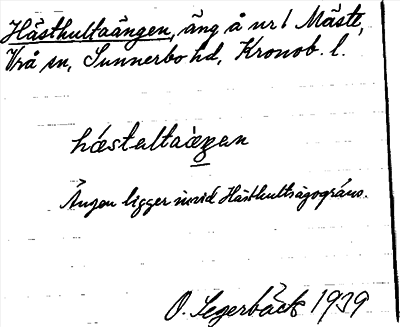 Hästhultaängen, äng å nr 1 Mäste,
Vrå sn, Sunnerbo hd, Kronob. l.
hæstaltaàŋən
Ängen ligger invid Hästhultsägogräns.
O. Segerbäck 1939